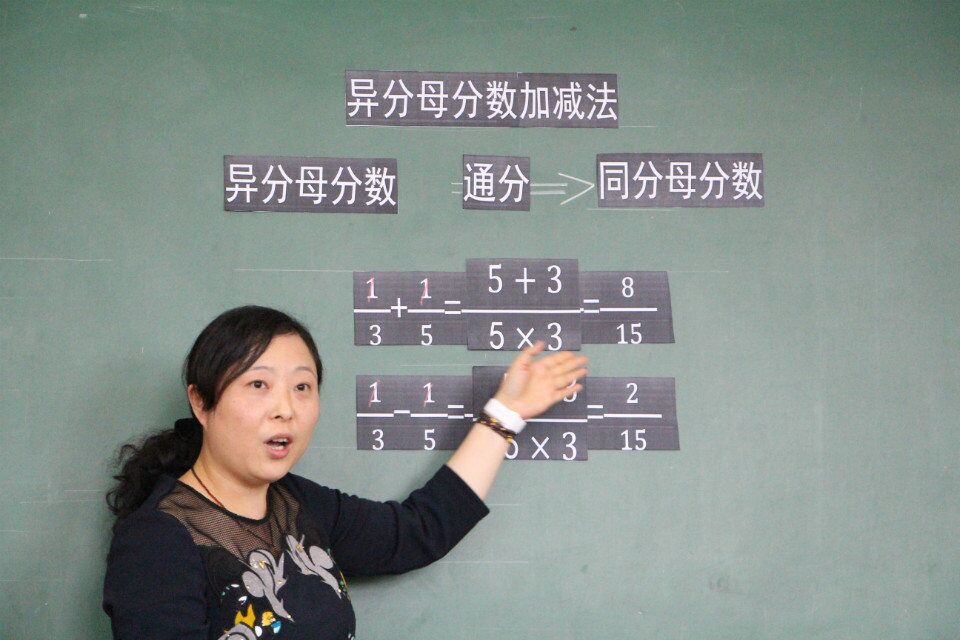 异分母分数加减法
异分母分数 通分 同分母分数
1/3 + 1/5 = (5 + 3)/(5 × 3) = 8/15
1/3 - 1/5 = 3/(5 × 3) = 2/15